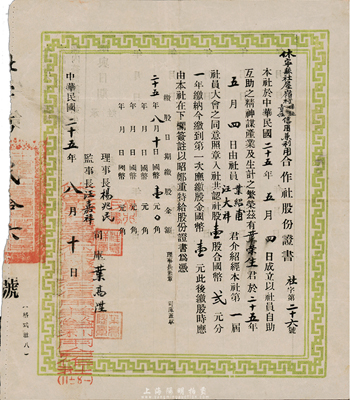 休寧縣社屋嶺村 信用兼利用合作社股份證書
社字第二十六號
本社於中華民國二十五年五月四日成立以社員自助
互助之精神謀產業及生計之繁榮茲有葉 生君於二十五年
五月四日由社員葉紹甫 汪大祥君介紹經本社第一屆
社員大會之同意照章入社共認社股壹股合國幣貳元分
一年繳納今繳到第一次應繳股金國幣壹元此後繳股時應
由本社在下欄簽註以昭鄭重特給股份證書爲憑
繳股日期 繳股金額
二十五年八月十日 國幣壹元〇角
年 月 日 國幣 元 角
年 月 日 國幣 元 角
理事長楊兆民
監事長汪嘉祥
司庫葉高陞
中華民國二十五年八月十日
貳拾六號
(格式第八)